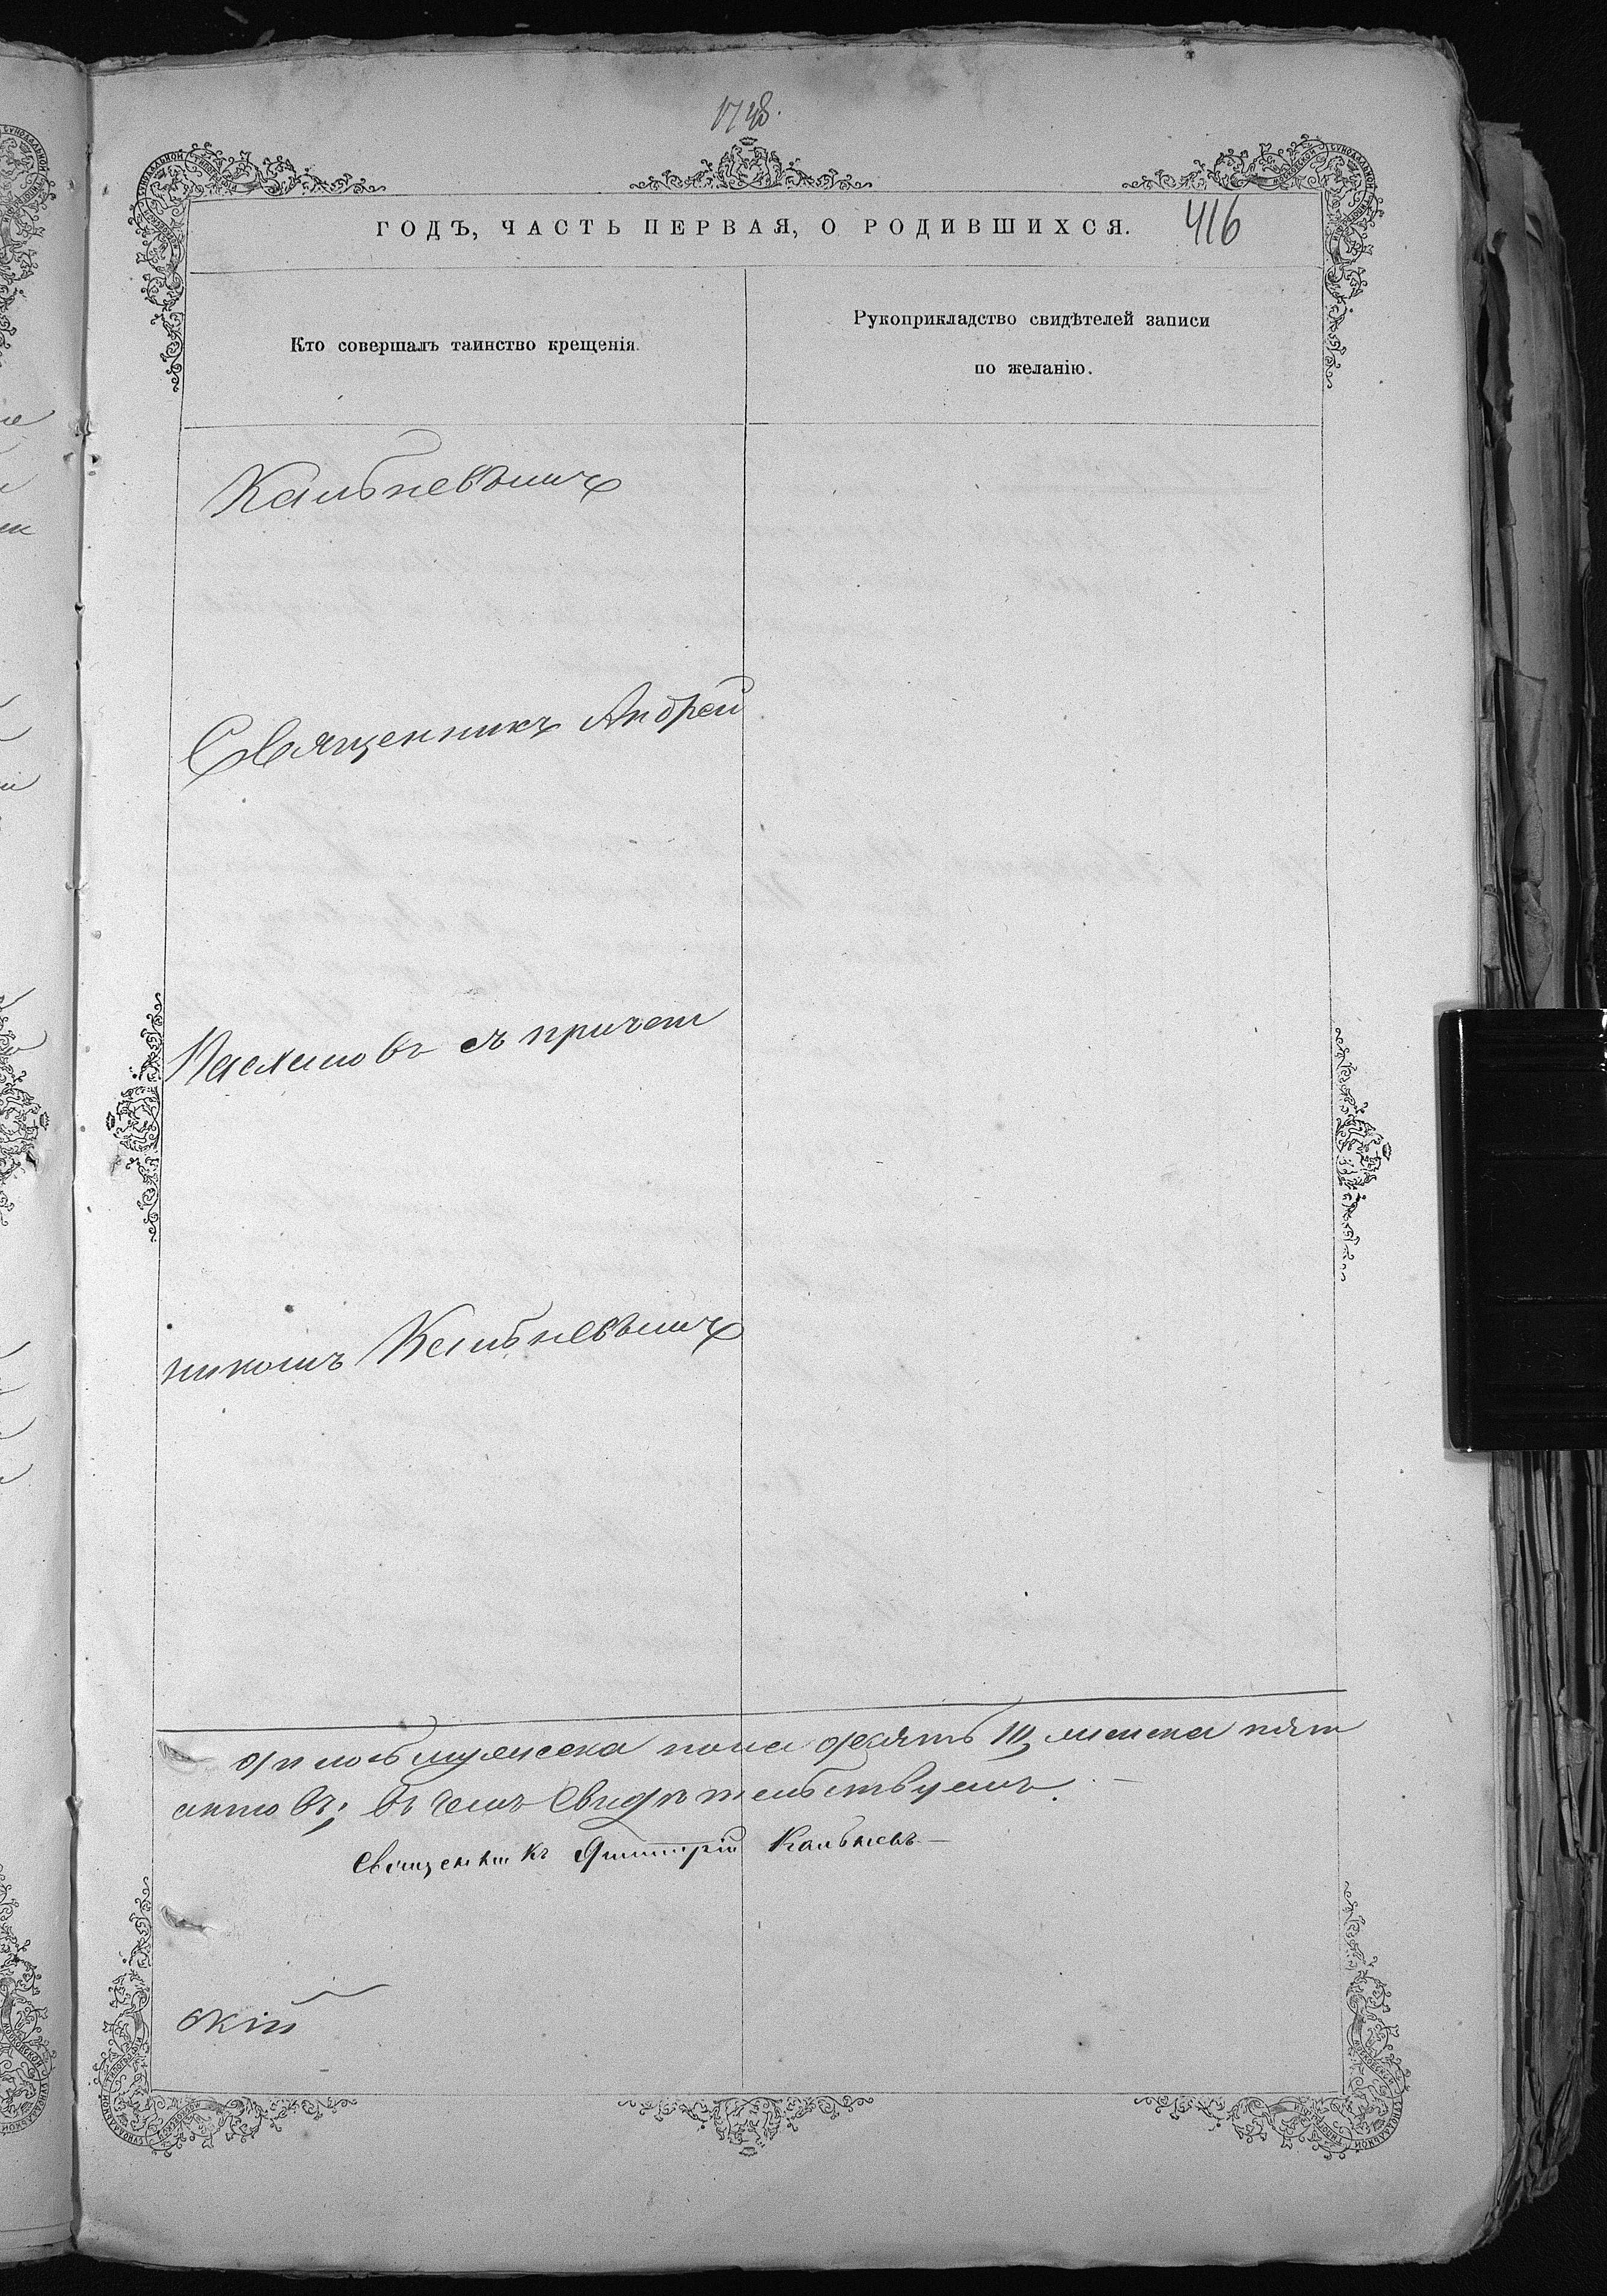 1748.
ГОДЪ, ЧАСТЬ ПЕРВАЯ, О РОДИВШИХСЯ.
416
Кто совершалъ таинство крещенія.
Рукоприкладство свидѣтелей записи
по желанію.
Кальневымъ
Священникъ Андрей
съ причет
никомъ Кальневымъ
пола десять женска пят
актовъ; въ чемъ свидѣтельствуемъ.
Священникъ Димитрій Кальневъ
скій